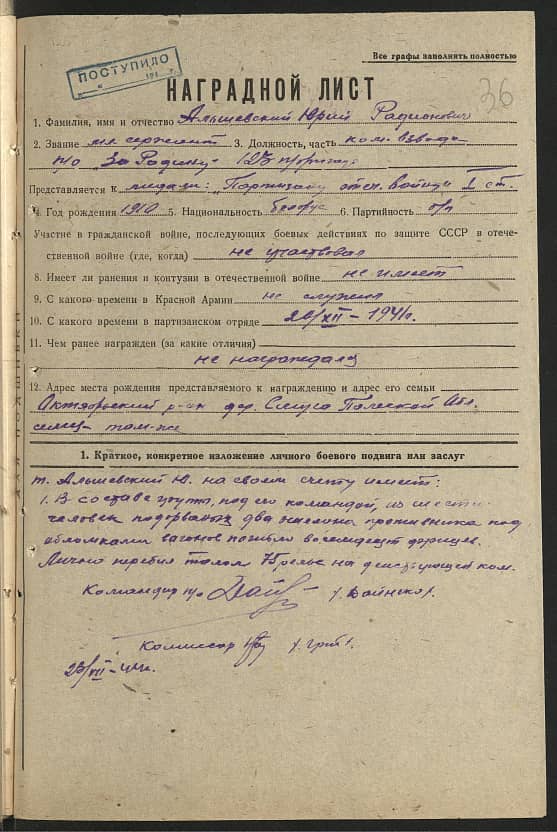 Все графы заполнять полностью
ПОСТУПИЛО
36
НАГРАДНОЙ ЛИСТ
1. Фамилия, имя и отчество Альшевский Юрий Радионович
2. Звание мл сержант 3. Должность, часть ком. взвода
п/о "За Родину" 123 п/бригады
Представляется к медали: "Партизану отеч. войны" I ст.
4. Год рождения 1910 5. Национальность белорус 6. Партийность б/п
Участие в гражданской войне, последующих боевых действиях по защите СССР в отече-
ственной войне (где, когда) не участвовал
8. Имеет ли ранения и контузии в отечественной войне не имеет
9. С какого времени в Красной Армии не служил
10. С какого времени в партизанском отряде 20/XII – 1941г.
11. Чем ранее награжден (за какие отличия)
не награждался
12. Адрес места рождения представляемого к награждению и адрес его семьи
Октябрьский р-он дер. Полесской Обл.
семья там-же
ДЛЯ ПОДШИВКИ
1. Краткое, конкретное изложение личного боевого подвига или заслуг
т. Альшевский Ю. на своем счету имеет:
1. В составе группы, под его командой, из шести
человек подорваны два эшелона противника под
обломками вагонов погибло восемьдесят фрицев.
Лично перебил толом 75 рельс на действующей ком.
Командир п/о
Комиссар п/о